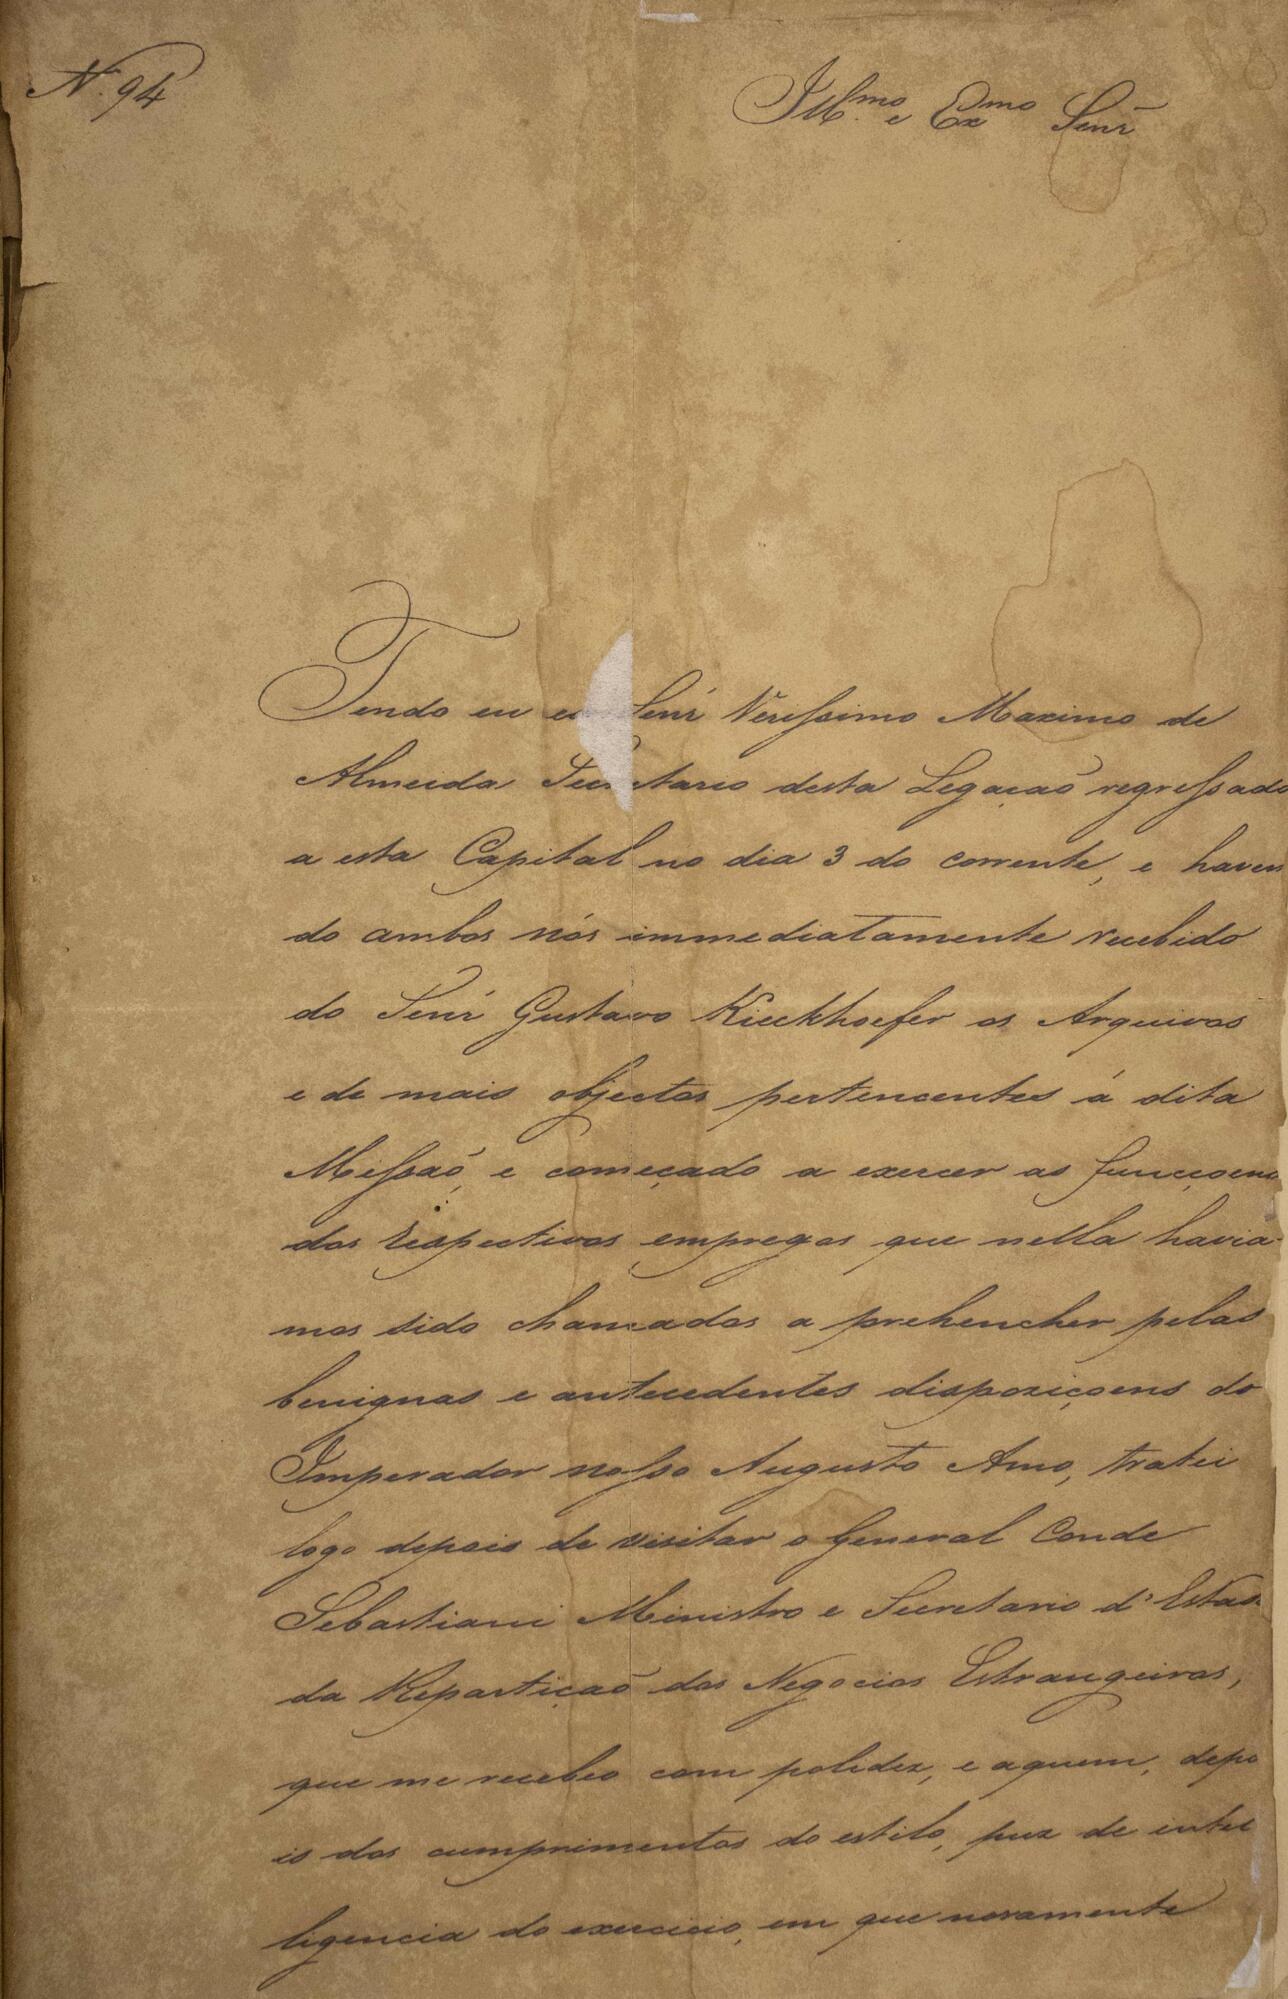 N.º 94
Ill.mo e Ex.mo Senr
Tendo eu e o Senr Verissimo Maximo de
Almeida Secretario desta Legação regressado
a esta Capital no dia 3 do corrente, e haven
do ambos nós immediatamente recebido
do Senr Gustavo Kieckhoefer os Arquivos
e de mais objectos pertencentes á dita
Missaõ, e começado a exercer as funcçoens
dos respectivos empregos que nella havia-
mos sido chamados a prehencher pelas
benignas e antecedentes dispoziçoens do
Imperador nosso Augusto Amo, tratei
logo depois de visitar o General Conde
Sebastiani Ministro e Secretario d'Estado
da Repartiçaõ dos Negocios Estrangeiros,
que me recebeo com polidez, e aquem, depo
is dos cumprimentos do estilo, puz de intel
ligencia do exercicio, em que novamente